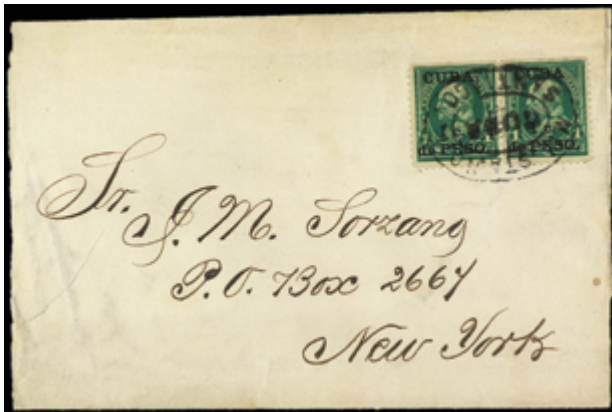 CUBA
1 c. de PESO.
CUBA
1 c. de PESO.
Sr. J. M. Sorzano
P.O. Box 2667
New York